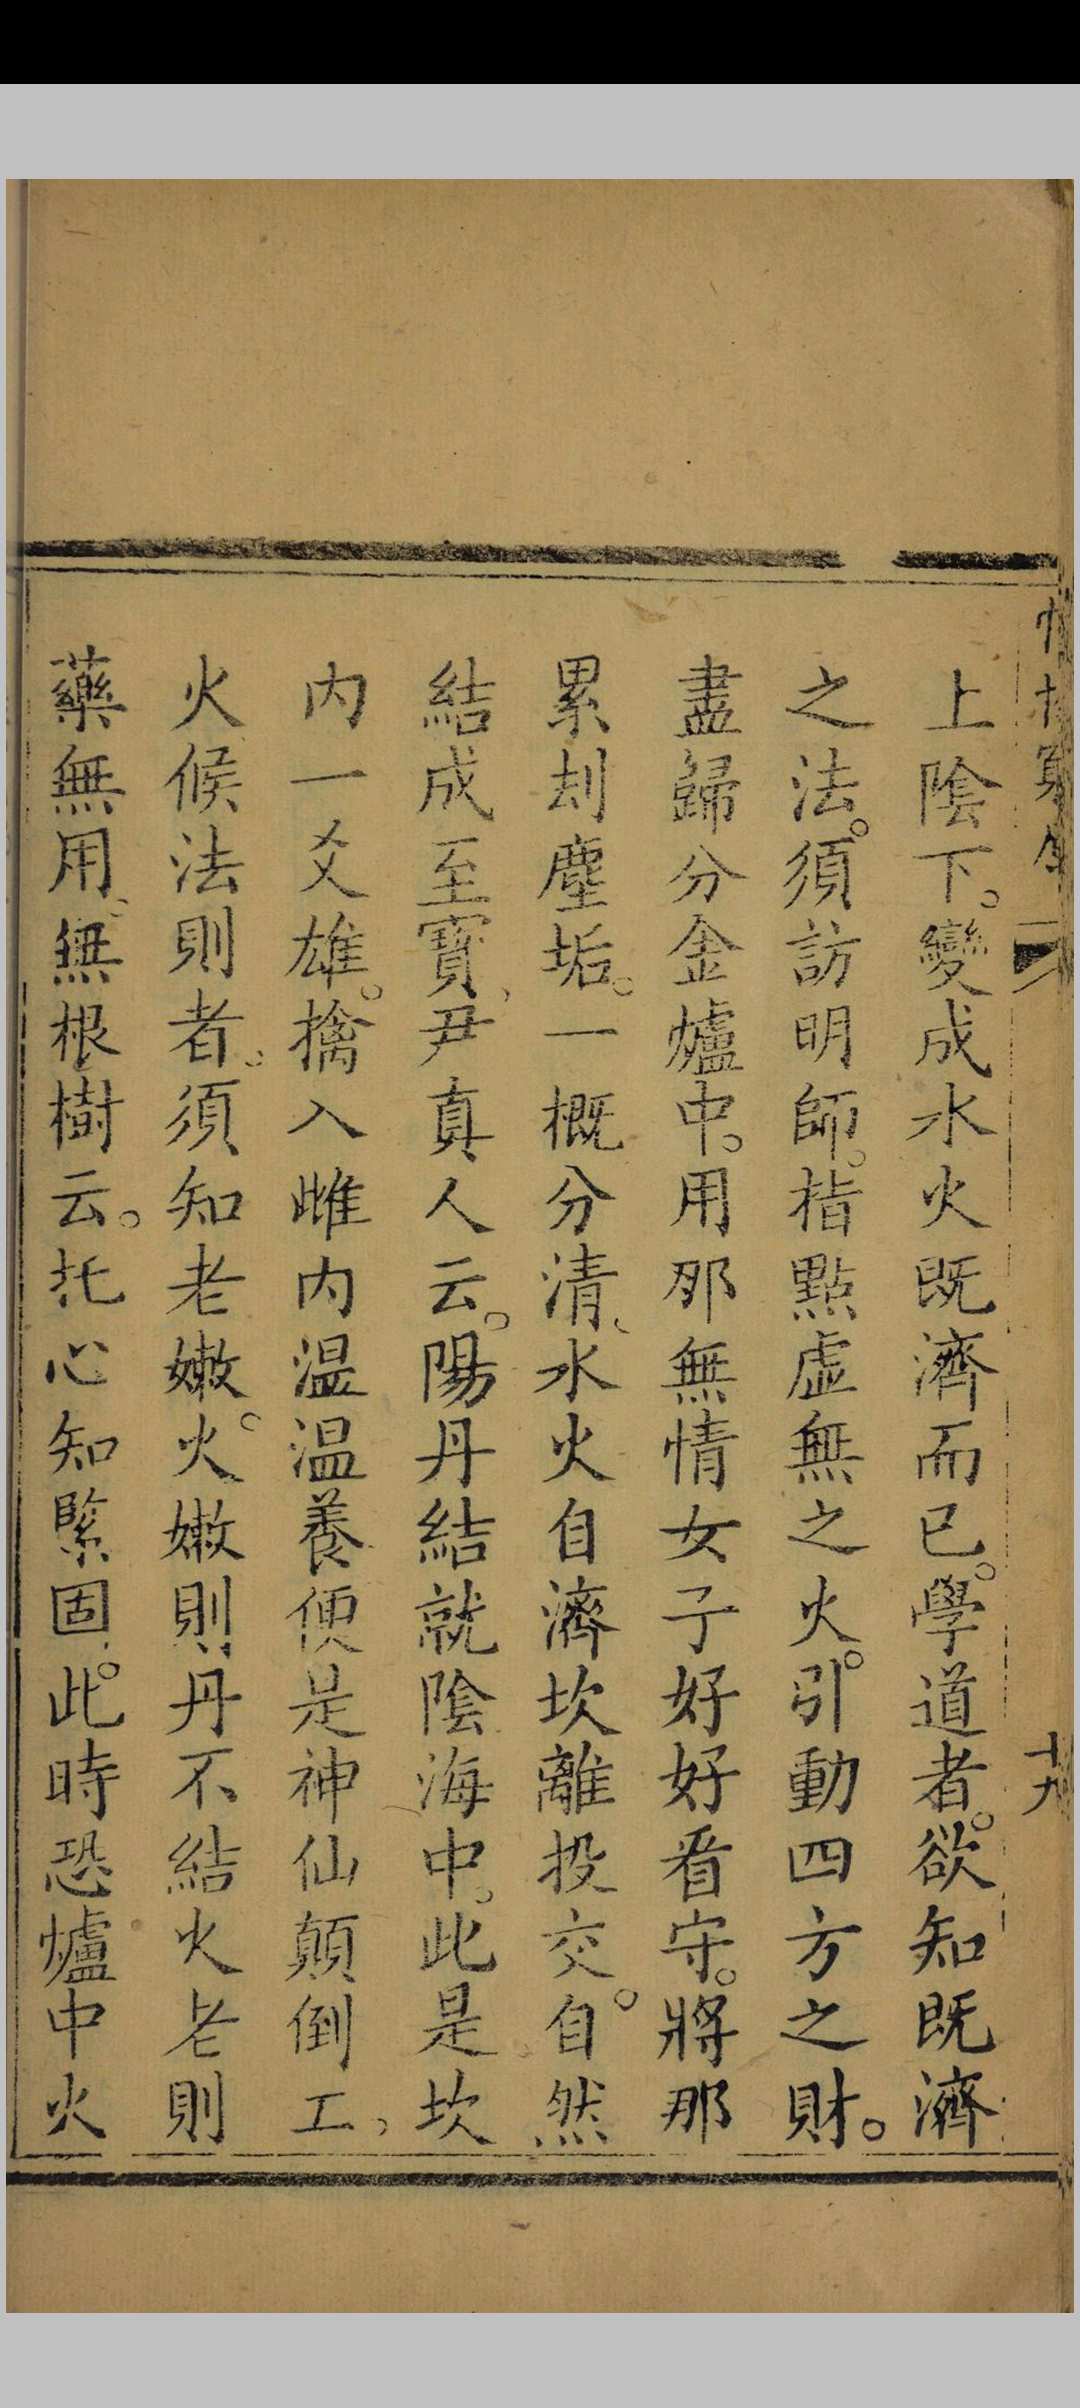 上陰下。變成水火既濟而已。學道者。欲知既濟
之法。須訪明師。指點虛無之火。引動四方之財。
盡歸分金爐中。用那無情女子好好看守。將那
累刦塵垢。一概分清、水火自濟坎離投交。自然
結成至寶、尹真人云。陽丹結就陰海中。此是坎
内一爻雄。擒入雌内温温養便是神仙顛倒工、
火候法則者。須知老嫩。火嫩則丹不結火老則
藥無用。無根樹云。托心知緊固。此時恐爐中火
十九